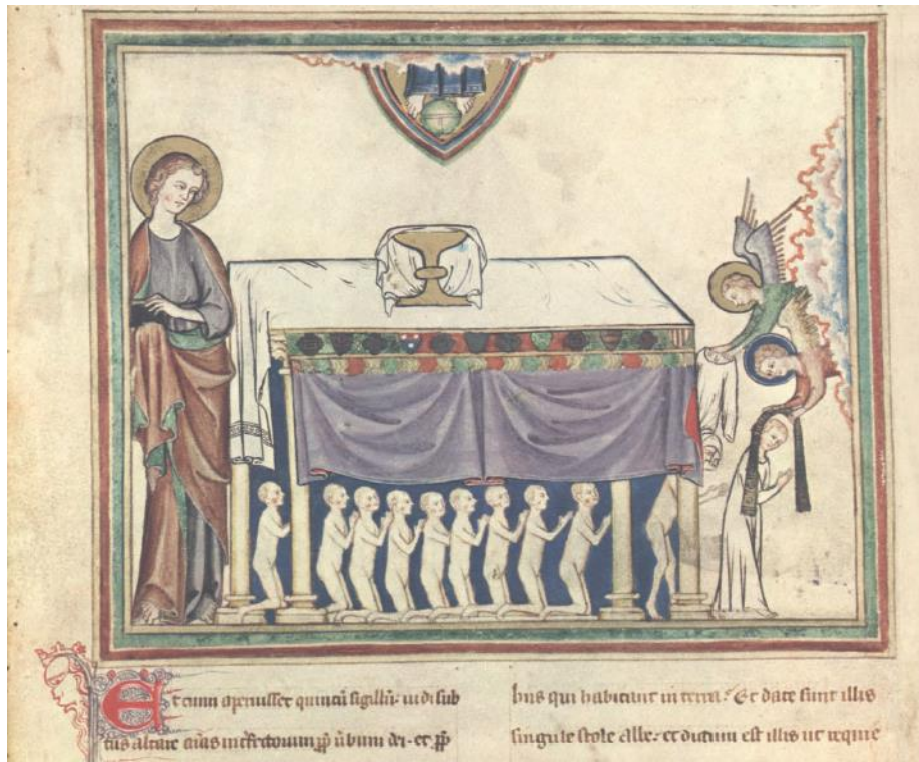 Et cum aperuisset quintũ sigillũ: uidi sub
tus altare aĩas intfectorum ꝓp̃ ũbum dei · et ꝓp̃
hiis qui habitant in terra: Et date sunt illis
singule stole albe: et dictum est illis ut requie